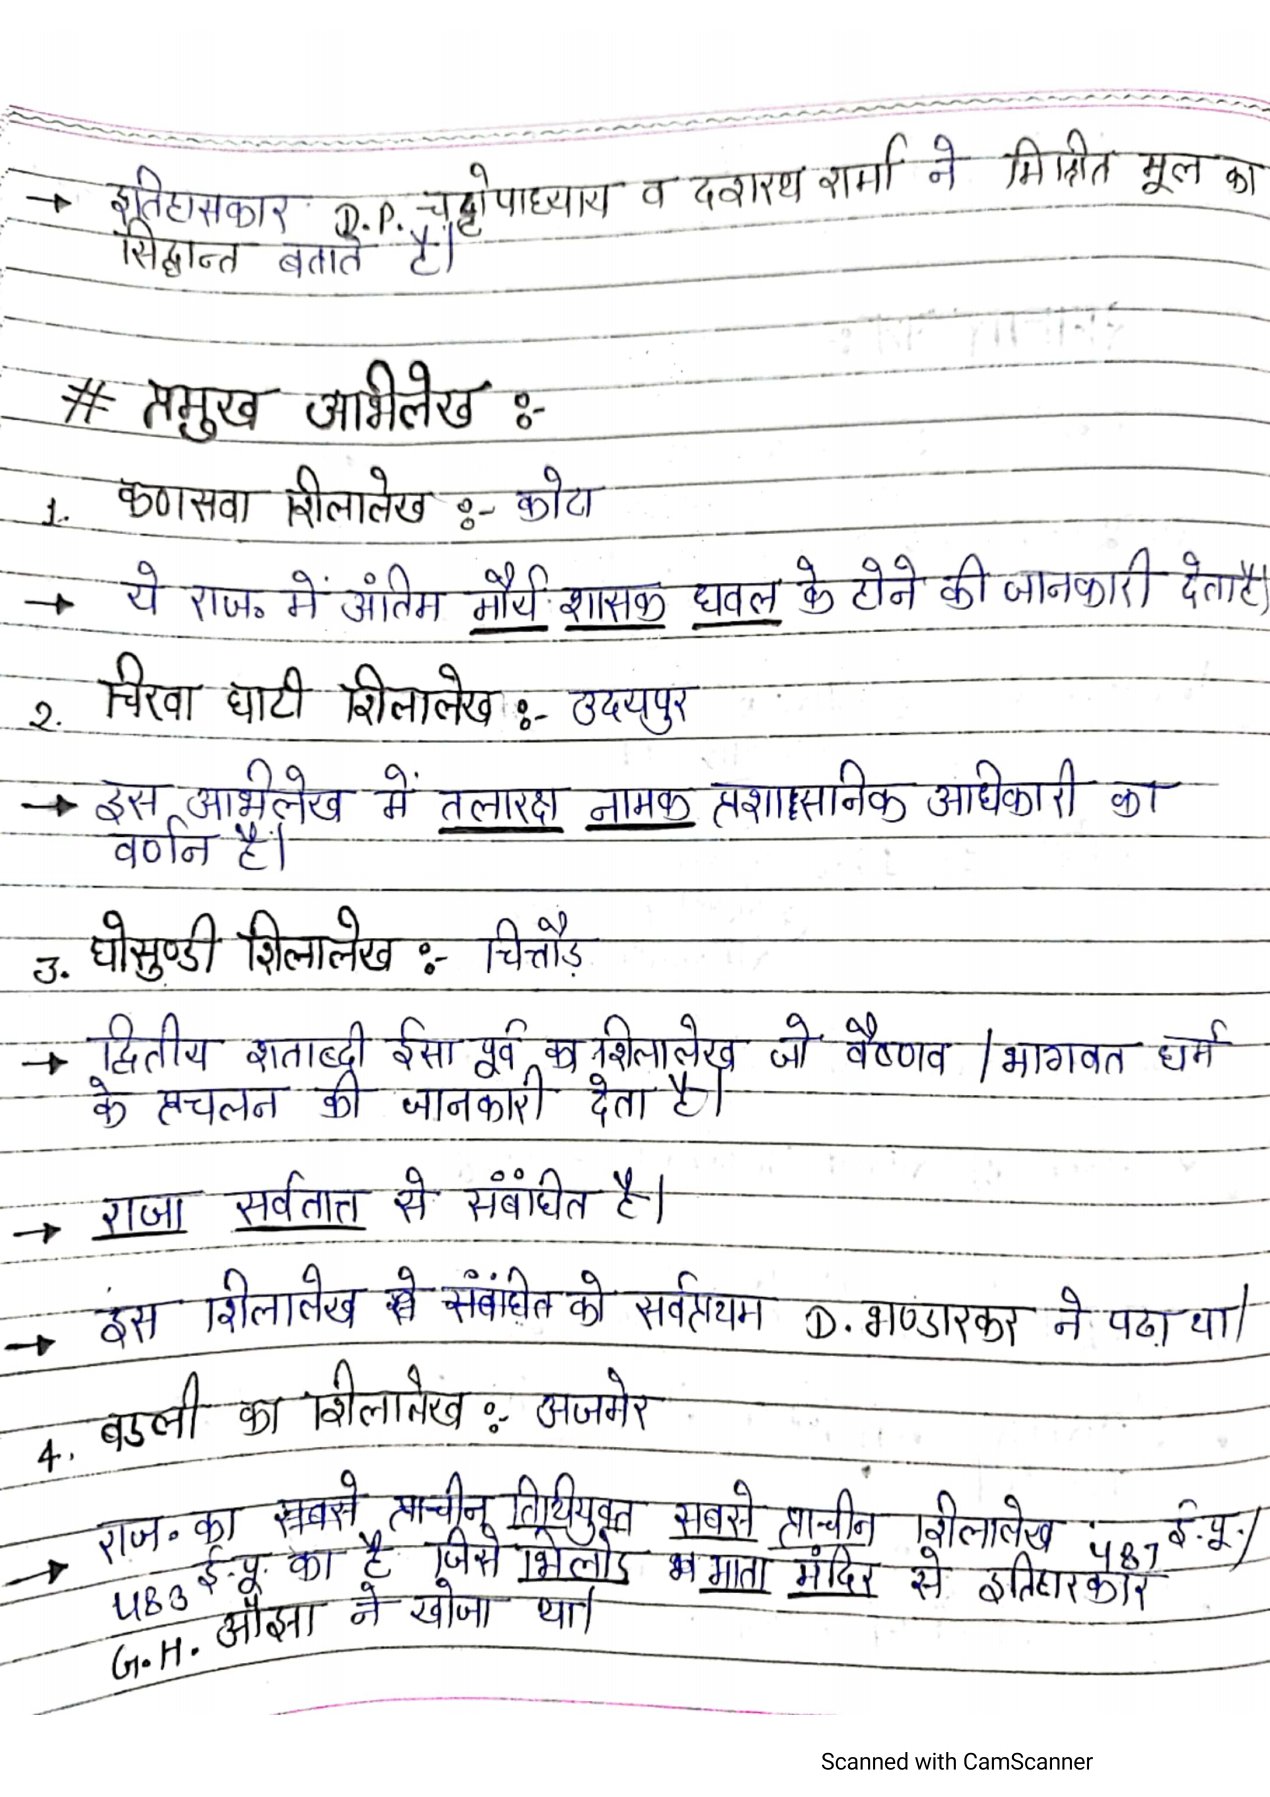 → इतिहासकार D.P. चट्टोपाध्याय व दशरथ शर्मा ने मिश्रित मूल का
सिद्धान्त बताते है।
# प्रमुख अभिलेख :-
1. कणसवा शिलालेख :- कोटा
→ ये राज. में अंतिम मौर्य शासक धवल के होने की जानकारी देता है।
2. चिरवा घाटी शिलालेख :- उदयपुर
→ इस अभिलेख में तलारक्ष नामक प्रशासनिक अधिकारी का
वर्णन है।
3. घोसुण्डी शिलालेख :- चित्तौड़
→ द्वितीय शताब्दी ईसा पूर्व का शिलालेख जो वैष्णव / भागवत धर्म
के प्रचलन की जानकारी देता है।
→ राजा सर्वतात्त से संबंधित है।
→ इस शिलालेख से संबंधित को सर्वप्रथम D. भण्डारकर ने पढा था।
4. बडली का शिलालेख :- अजमेर
→ राज. का सबसे प्राचीन तिथियुक्त सबसे प्राचीन शिलालेख 487 ई.पू./
483 ई.पू. का है जिसे भिलोड माता मंदिर से इतिहारकार
G.H. औझा ने खोजा था।
Scanned with CamScanner